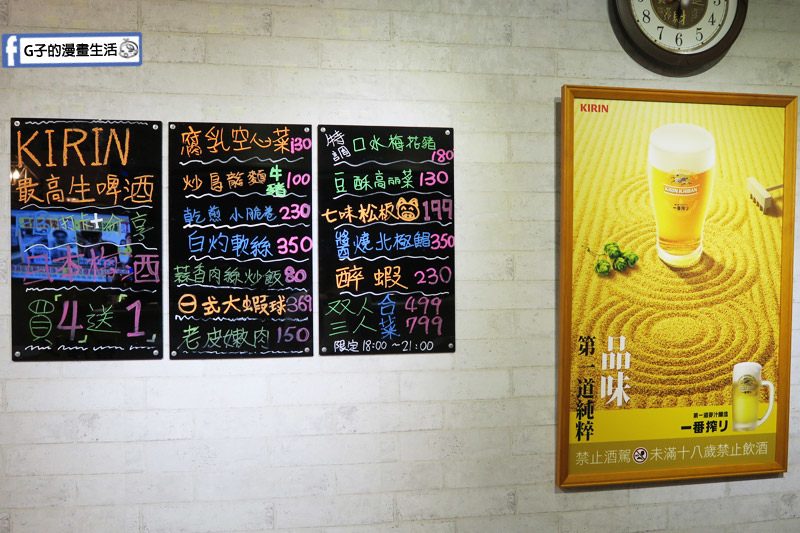 G子的漫畫生活
KIRIN
最高生啤酒
日本梅酒
買「4」送「1」
腐乳空心菜130
牛
豬
炒烏龍麵 100
乾煎小脆卷230
白灼軟絲350
蒜香肉絲炒飯80
日式大蝦球369
老皮嫩肉150
特調 口水梅花豬180
豆酥高麗菜130
七味松板 199
醬燒北極鯧350
醉蝦230
双人合499
三人菜799
限定18:00~21:00
KIRIN
KIRIN ICHIBAN
一番搾り
品味
第一道純粹
第一道麥汁釀造
一番搾り
禁止酒駕 未滿十八歲禁止飲酒